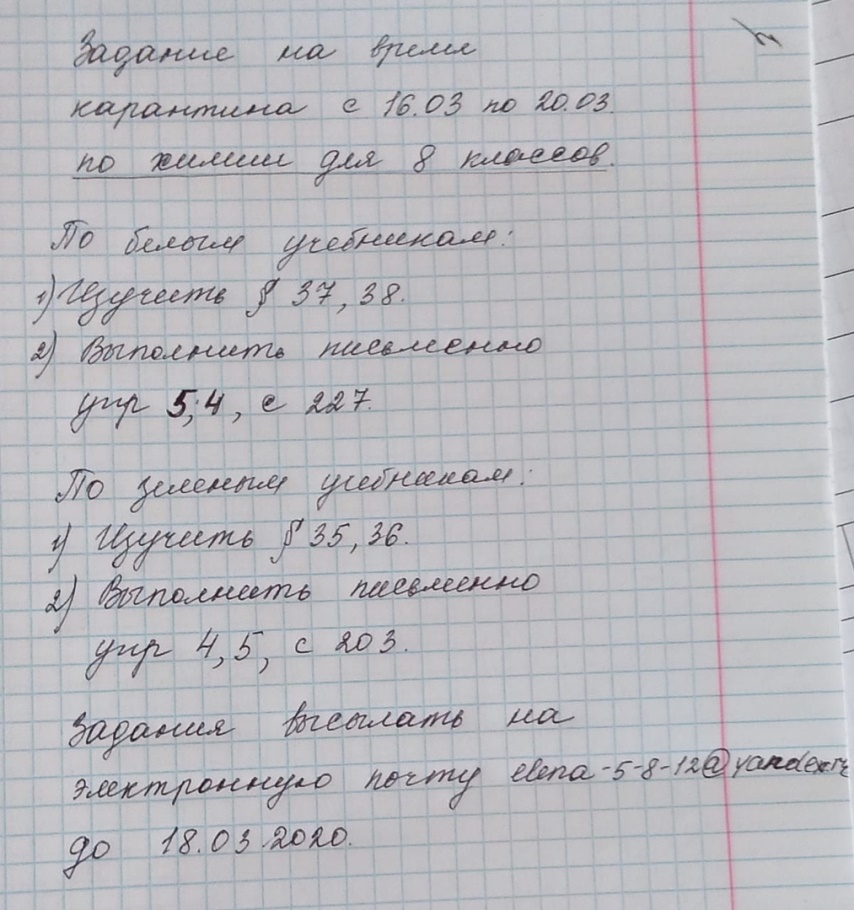 Задание на время
карантина с 16.03 по 20.03.
по химии для 8 классов.
По белым учебникам:
1) Изучить § 37, 38.
2) Выполнить письменно
упр 5; 4, с 227.
По зеленым учебникам:
1) Изучить § 35, 36.
2) Выполнить письменно
упр 4, 5, с 203.
Задания высылать на
электронную почту elena-5-8-12@yandex.ru
до 18.03.2020.